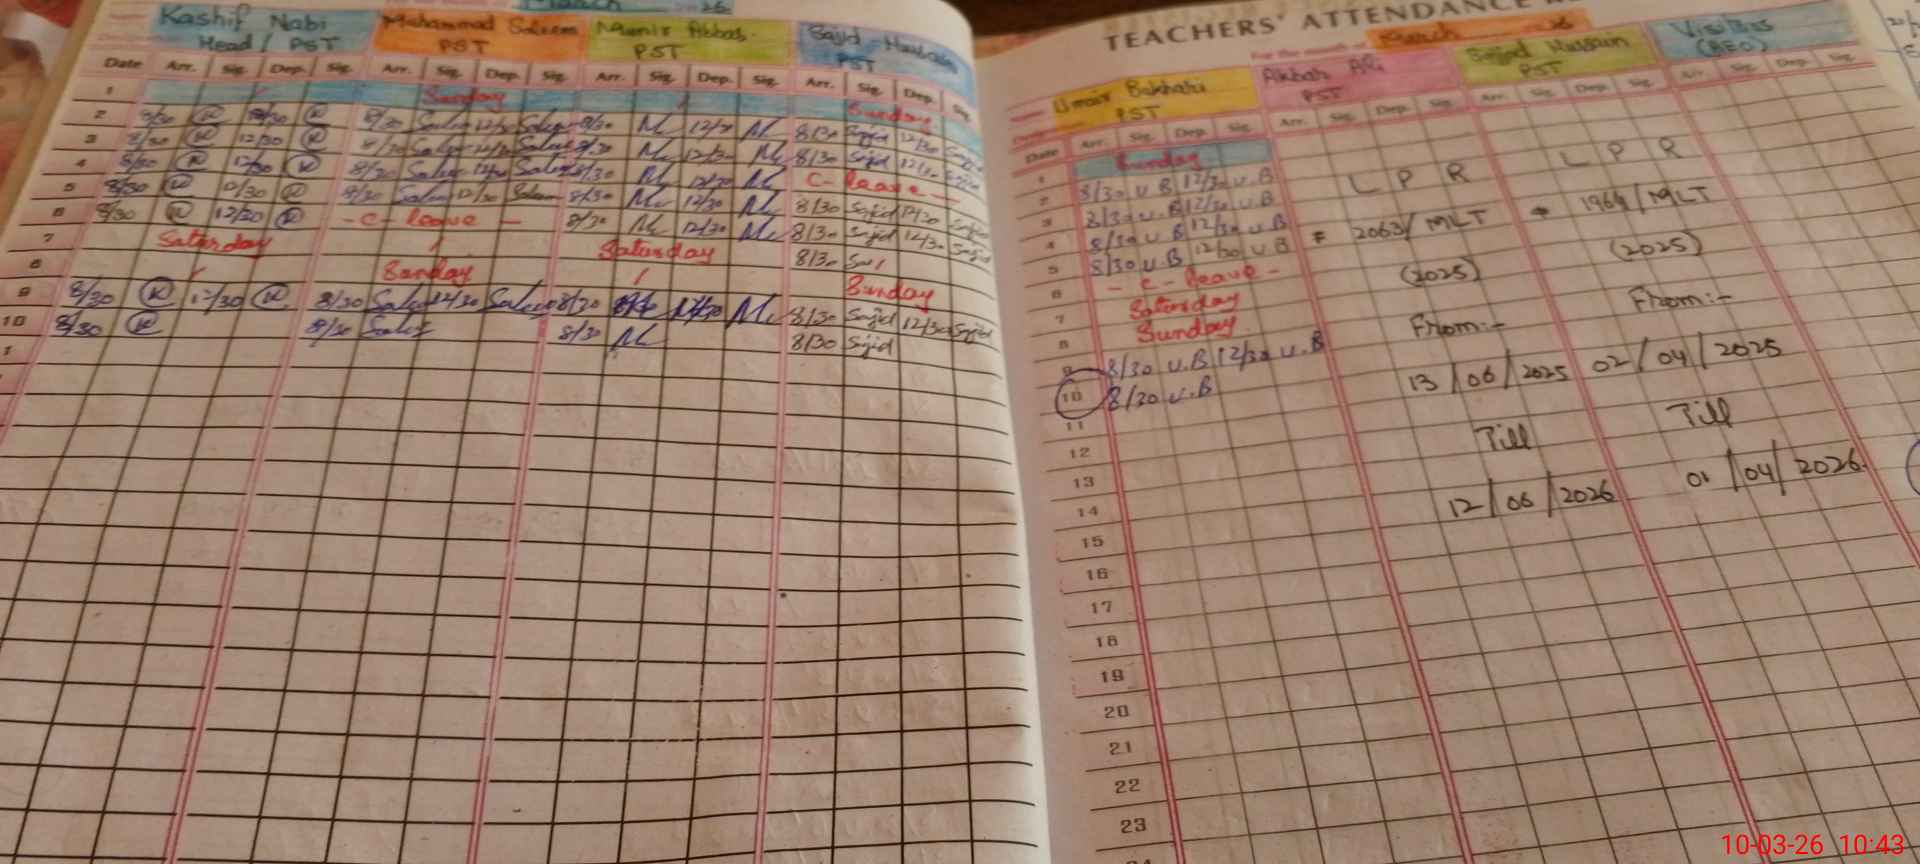 March 26
Kashif Nabi
Head / PST
Muhammad Saleem
PST
Munir Abbas
PST
Sajid Hussain
PST
Date Arr. Sig. Dep. Sig. Arr. Sig. Dep. Sig. Arr. Sig. Dep. Sig. Arr. Sig. Dep. Sig.
1 Sunday Sunday
2 8/30 12/30 8/30 Saleem 12/30 Saleem 8/30 12/30 8/30 Sajid 12/30 Sajid
3 8/30 12/30 8/30 Saleem 12/30 Saleem 8/30 12/30 8/30 Sajid 12/30 Sajid
4 8/30 12/30 8/30 Saleem 12/30 Saleem 8/30 12/30 C- leave -
5 8/30 12/30 8/30 Saleem 12/30 Saleem 8/30 12/30 8/30 Sajid 12/30 Sajid
6 8/30 12/30 - C- leave - 8/30 12/30 8/30 Sajid 12/30 Sajid
7 Saturday Saturday 8/30
8 Sunday Sunday
9 8/30 12/30 8/30 Saleem 12/30 Saleem 8/30 12/30 8/30 Sajid 12/30 Sajid
10 8/30 8/30 Saleem 8/30 8/30 Sajid
TEACHERS' ATTENDANCE
For the month of March 26
Umair Bukhari
PST
Akbar Ali
PST
Sajjad Hussain
PST
Visitors
(AEO)
Date Arr. Sig. Dep. Sig. Arr. Sig. Dep. Sig. Arr. Sig. Dep. Sig. Arr. Sig. Dep. Sig.
1 Sunday
2 8/30 U.B 12/30 U.B
3 8/30 U.B 12/30 U.B
4 8/30 U.B 12/30 U.B
5 8/30 U.B 12/30 U.B
6 - C- leave -
7 Saturday
8 Sunday
9 8/30 U.B 12/30 U.B
10 8/30 U.B
11
12
13
14
15
16
17
18
19
20
21
22
23
L P R
2063/MLT
(2025)
From:-
13/06/2025
Till
12/06/2026
L P R
1964/MLT
(2025)
From:-
02/04/2025
Till
01/04/2026
10-03-26 10:43